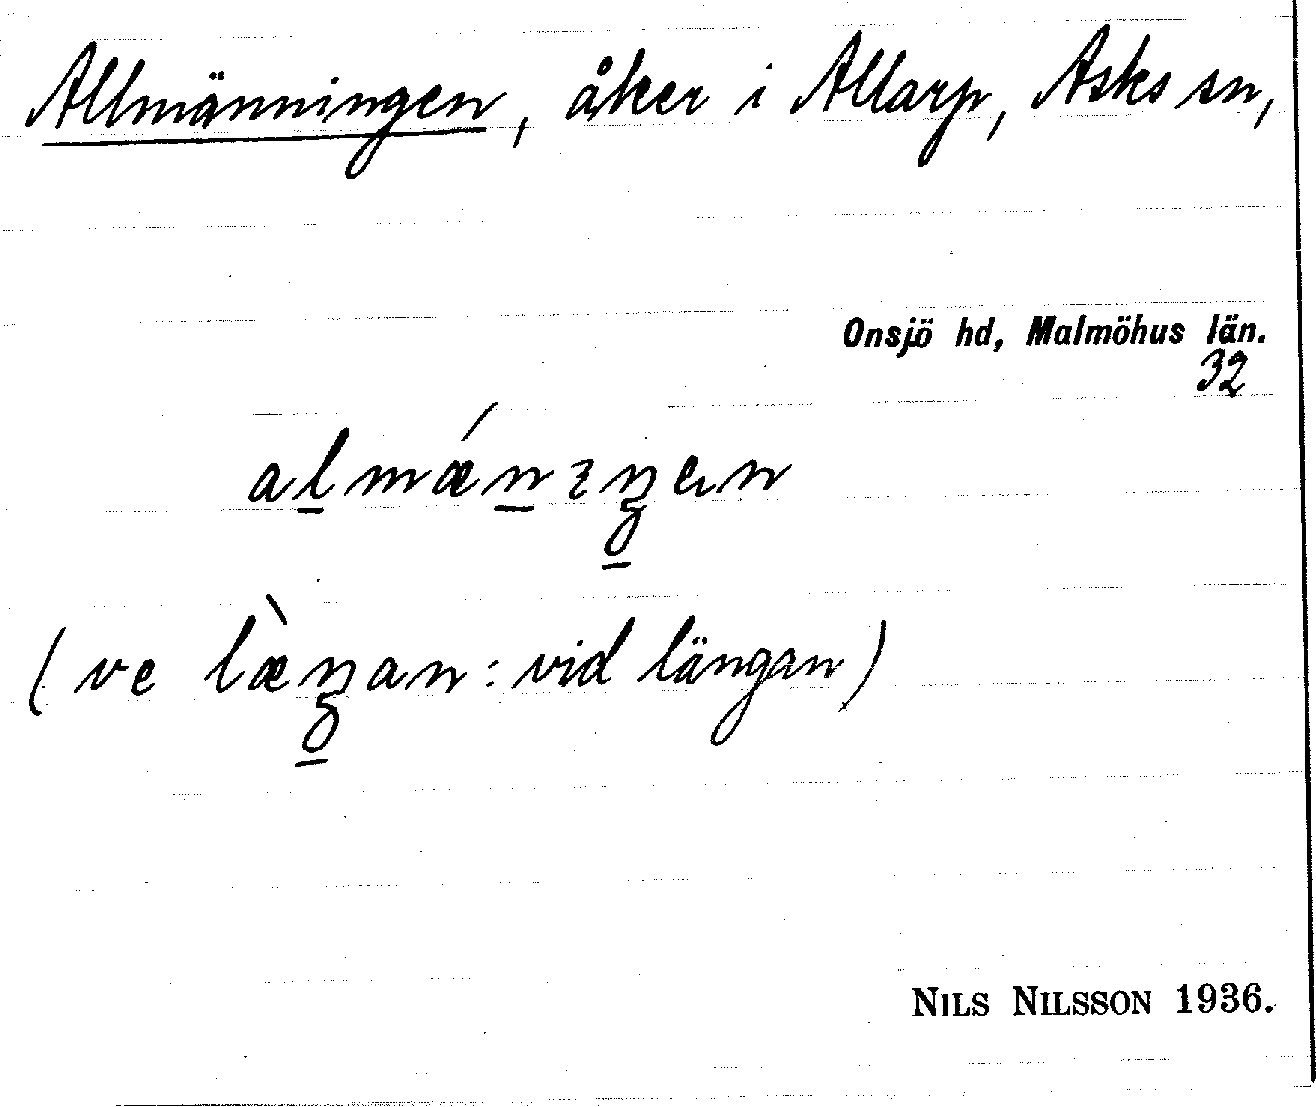 Allmänningen, åker i Allarp, Asks sn,
Onsjö hd, Malmöhus län.
32
almǽnɪŋen
(ve læ̀ŋan: vid längan)
NILS NILSSON 1936.